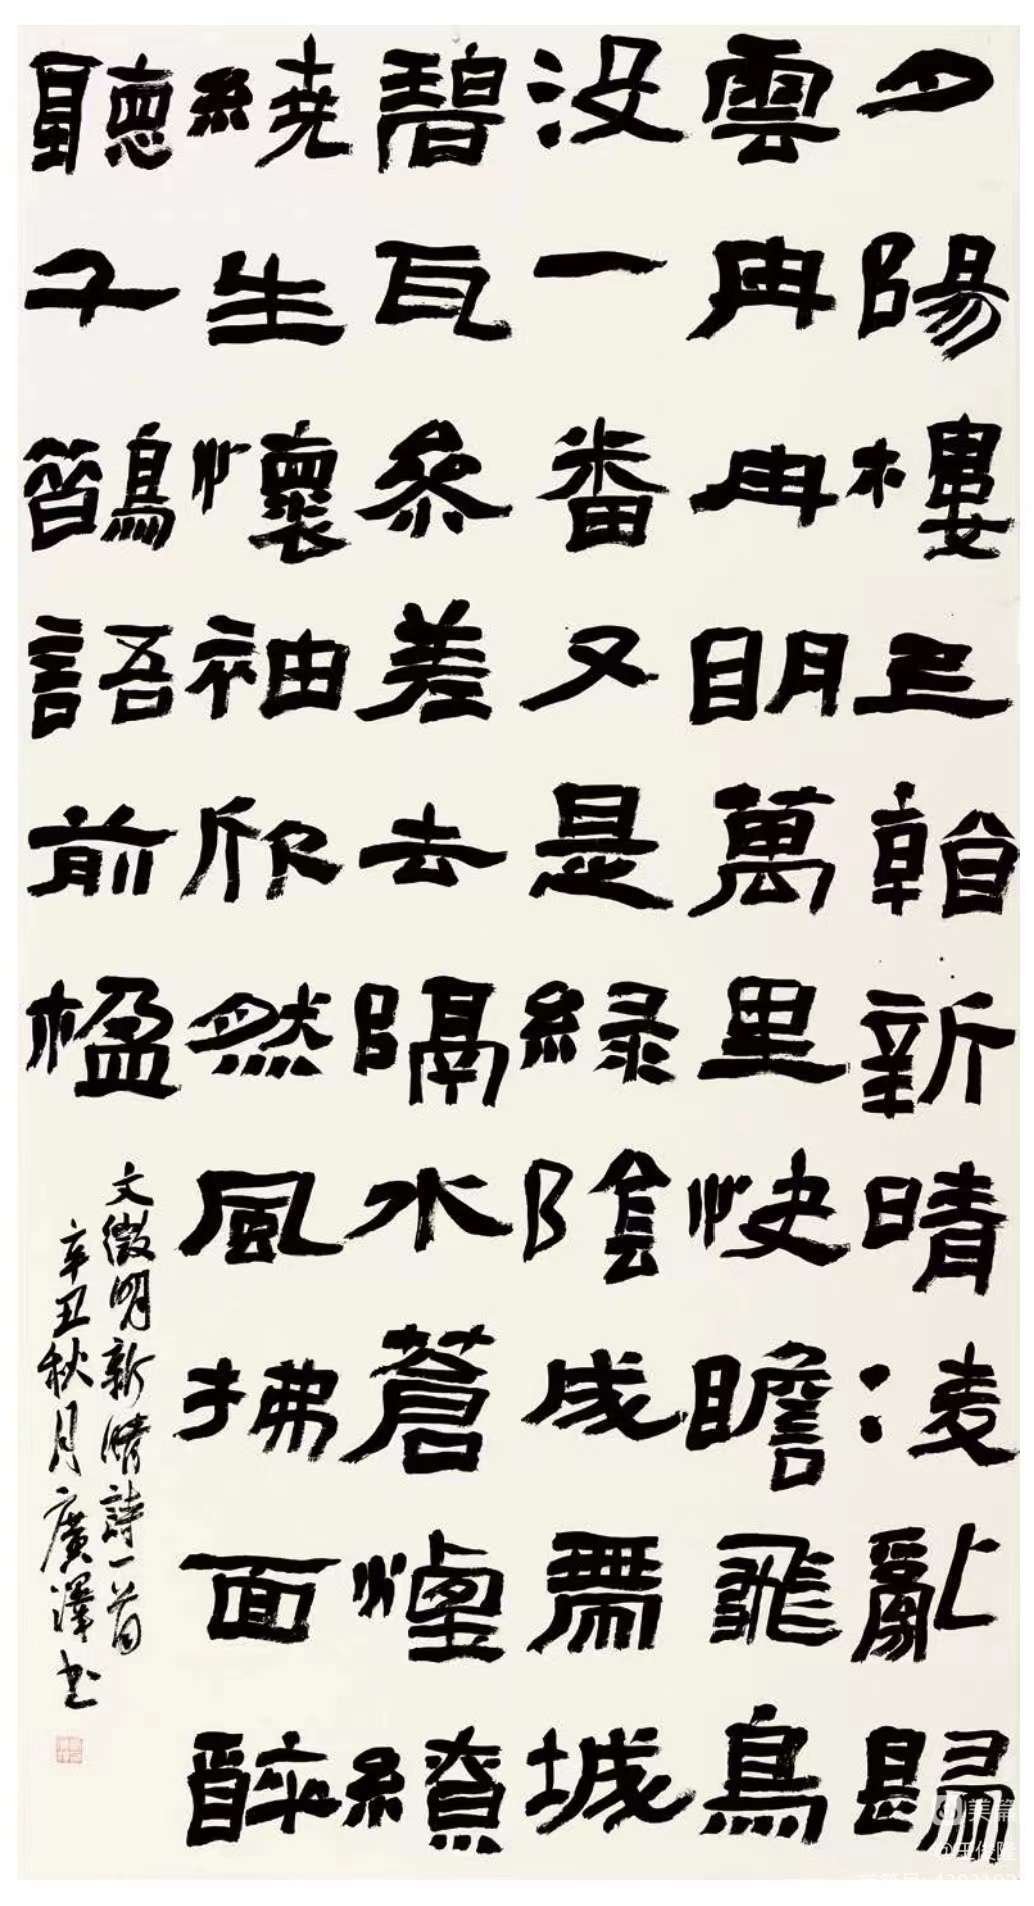 夕陽樓上新晴淩亂歸
雲冉冉明萬里快瞻飛鳥
没一番又是綠陰成帶城
碧瓦參差去隔水蒼煙繚
繞生懷袖欣然風拂面醉
聽鵲語前楹
文徵明新晴詩一首
辛丑秋月廣澤书
美篇